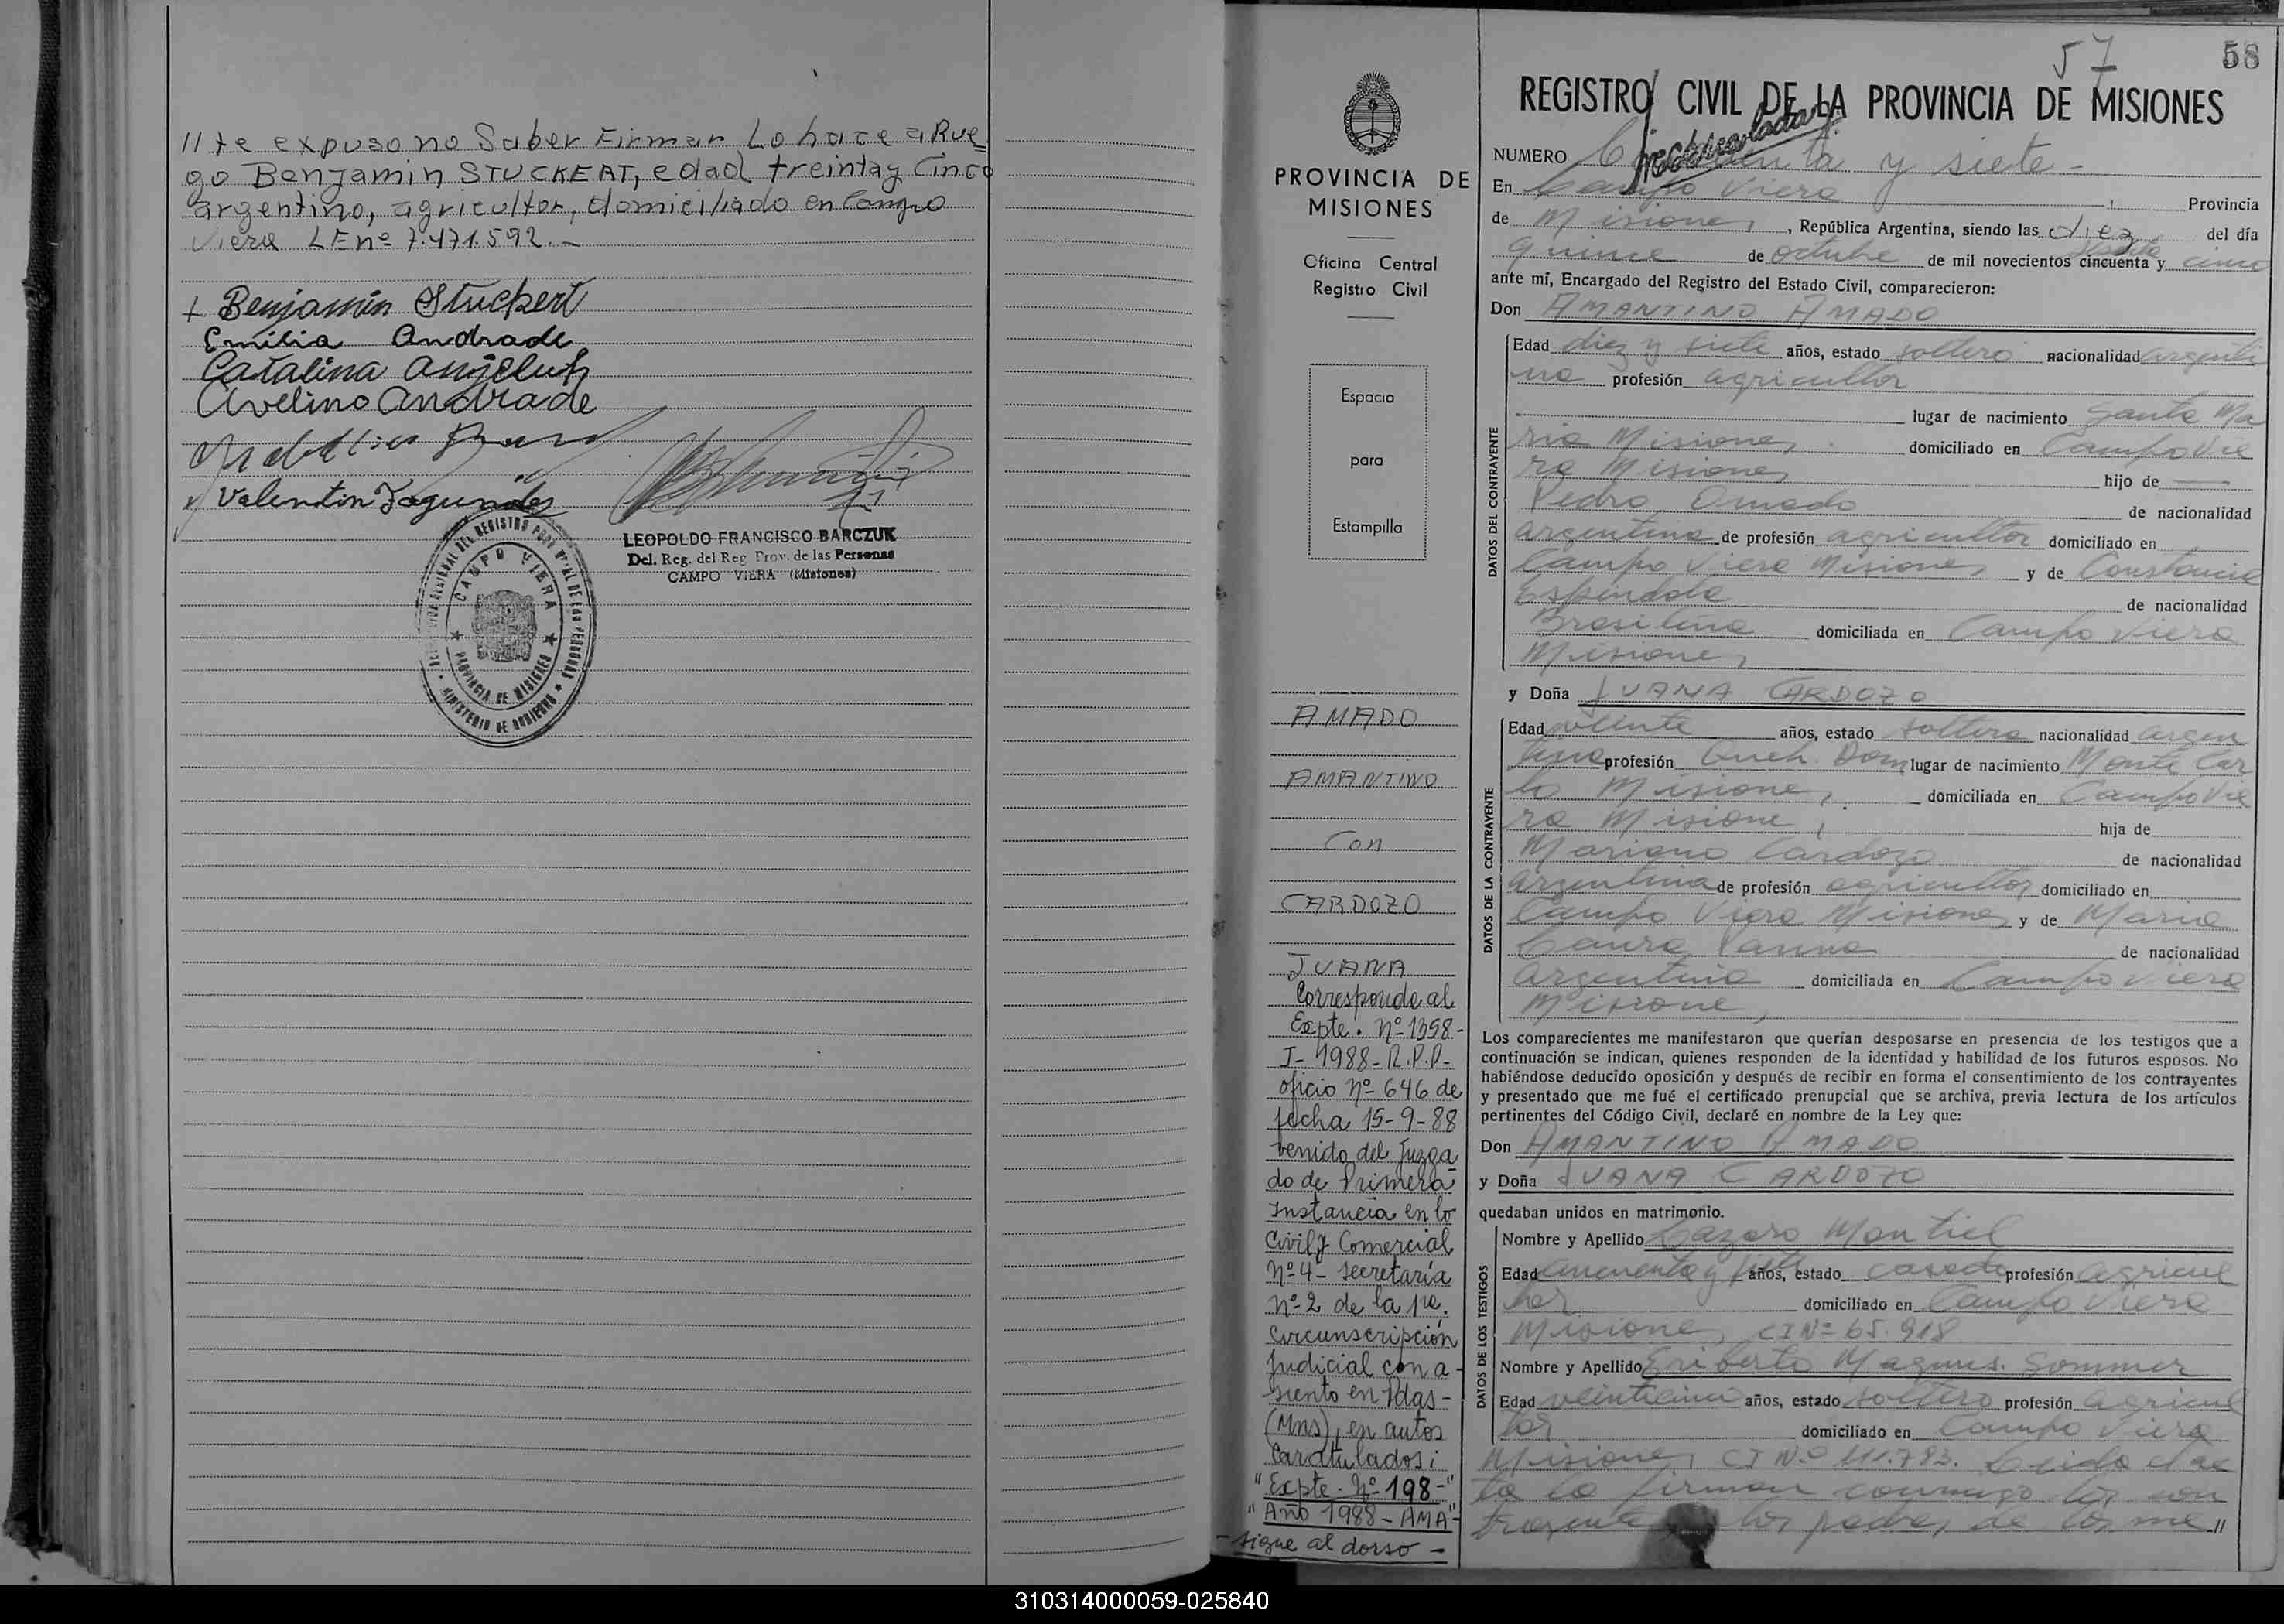 //te expuso no Saber Firmar Lo hace a Rue
go Benjamin STUCKEAT, edad treintay Cinco
argentino, agricultor, domiciliado en Campo
Viera LE nº 7.471.592.-
+ Benjamín Stuckert
Emilia Andrade
Catalina
Avelino Andrade
Valentin Fagundes
LEOPOLDO FRANCISCO BARCZUK
Del. Reg. del Reg Prov. de las Personas
CAMPO VIERA (Misiones)
CAMPO VIERA
PROVINCIA DE MISIONES
MINISTERIO DE GOBIERNO
PROVINCIA DE
MISIONES
Oficina Central
Registro Civil
Espacio
para
Estampilla
AMADO
AMANTINO
Con
CARDOZO
JUANA
Corresponde al
Expte. Nº 1358-
I-1988-R.P.P-
oficio Nº 646 de
fecha 15-9-88
venido del Juzga
do de Primera
Instancia en lo
Civil y Comercial
Nº 4- secretaría
Nº 2 de la 1ra.
Circunscripción
Judicial con a-
siento en Pdas-
(Mns), en autos
Caratulados:
"Expte. Nº 198-"
"Año 1988-AMA"-
-sigue al dorso-
57
58
REGISTRO CIVIL DE LA PROVINCIA DE MISIONES
NUMERO Cincuenta y siete-
En Campo Viera Provincia
de Misiones, República Argentina, siendo las diez del día
quince de octubre de mil novecientos cincuenta y sesenta cinco
ante mí, Encargado del Registro del Estado Civil, comparecieron:
Don AMANTINO AMADO
DATOS DEL CONTRAYENTE
Edad diez y siete años, estado soltero nacionalidad argenti
no profesión agricultor
lugar de nacimiento Santa Ma
ria Misiones domiciliado en Campo Vie
ra Misiones hijo de
Pedro Amado de nacionalidad
argentina de profesión agricultor domiciliado en
Campo Viera Misiones y de Constancia
Espindola de nacionalidad
Brasileña domiciliada en Campo Viera
Misiones
y Doña JUANA CARDOZO
DATOS DE LA CONTRAYENTE
Edad veinte años, estado soltera nacionalidad argen
tina profesión Queh. Dom lugar de nacimiento Monte Car
lo Misiones, domiciliada en Campo Vie
ra Misiones, hija de
Mariano Cardozo de nacionalidad
argentina de profesión agricultor domiciliado en
Campo Viera Misiones y de Maria
Laura de nacionalidad
Argentina domiciliada en Campo Viera
Misiones,
Los comparecientes me manifestaron que querían desposarse en presencia de los testigos que a
continuación se indican, quienes responden de la identidad y habilidad de los futuros esposos. No
habiéndose deducido oposición y después de recibir en forma el consentimiento de los contrayentes
y presentado que me fué el certificado prenupcial que se archiva, previa lectura de los artículos
pertinentes del Código Civil, declaré en nombre de la Ley que:
Don AMANTINO AMADO
y Doña JUANA CARDOZO
quedaban unidos en matrimonio.
DATOS DE LOS TESTIGOS
Nombre y Apellido Lazaro Montiel
Edad cincuenta y siete años, estado casado profesión agricul
tor domiciliado en Campo Viera
Misiones, CI Nº 65.918
Nombre y Apellido Eriberto Magnus. Sommer
Edad veinticinco años, estado soltero profesión agricul
tor domiciliado en Campo Viera
Misiones, CI Nº 111.783. Leida el ac
ta la firman conmigo los con
trayentes los padres de los me //
310314000059-025840